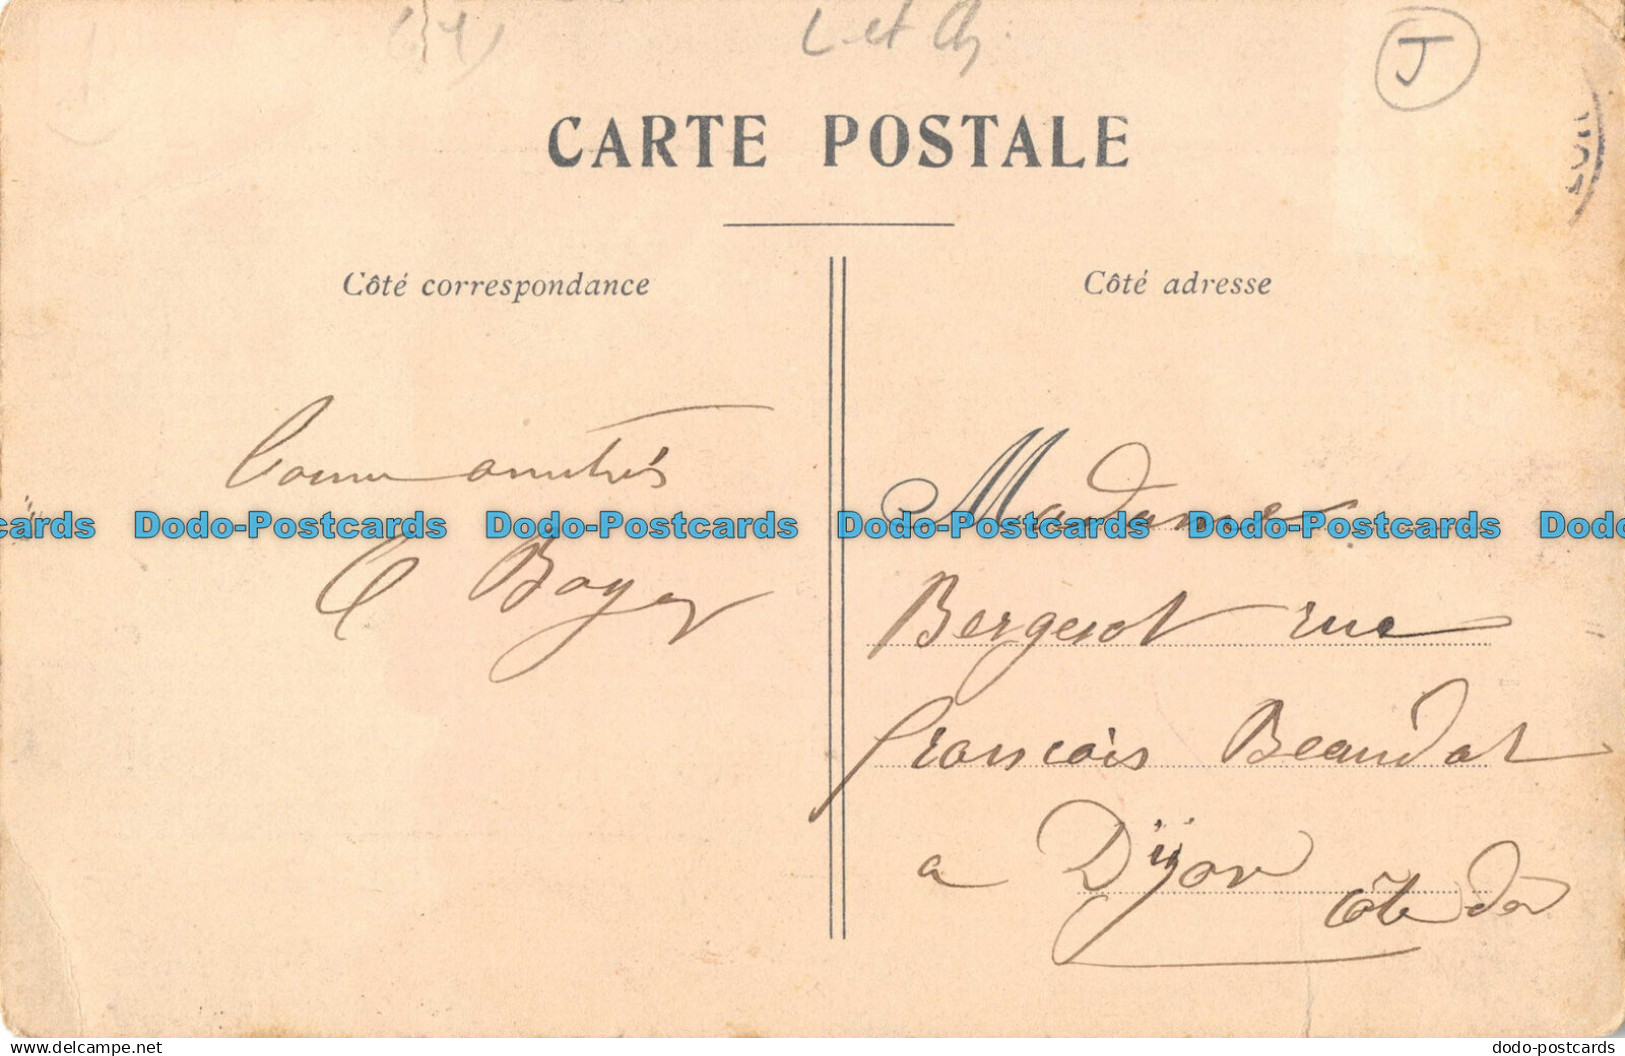 L et Ch.
J
CARTE POSTALE
Côté correspondance
Côté adresse
Bonnes amitiés
C Boyer
Madame
Bergerot rue
francois Beaudot
a Dijon
Côte dor
cards Dodo-Postcards Dodo-Postcards Dodo-Postcards Dodo-Postcards Dodo
www.delcampe.net/en
dodo-postcards